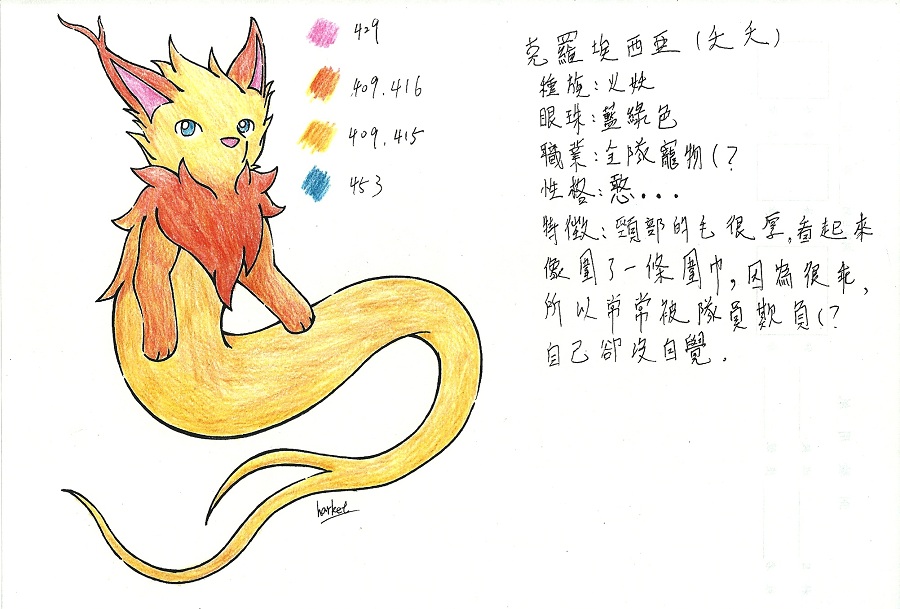 429
409.416
409.415
453
克羅埃西亞(尢尢)
種族:火妖
眼珠:藍綠色
職業:全隊寵物(?
性格:憨...
特徵:頸部的毛很厚,看起來
像圍了一條圍巾,因為很乖,
所以常常被隊員欺負(?
自己卻沒自覺.
harket